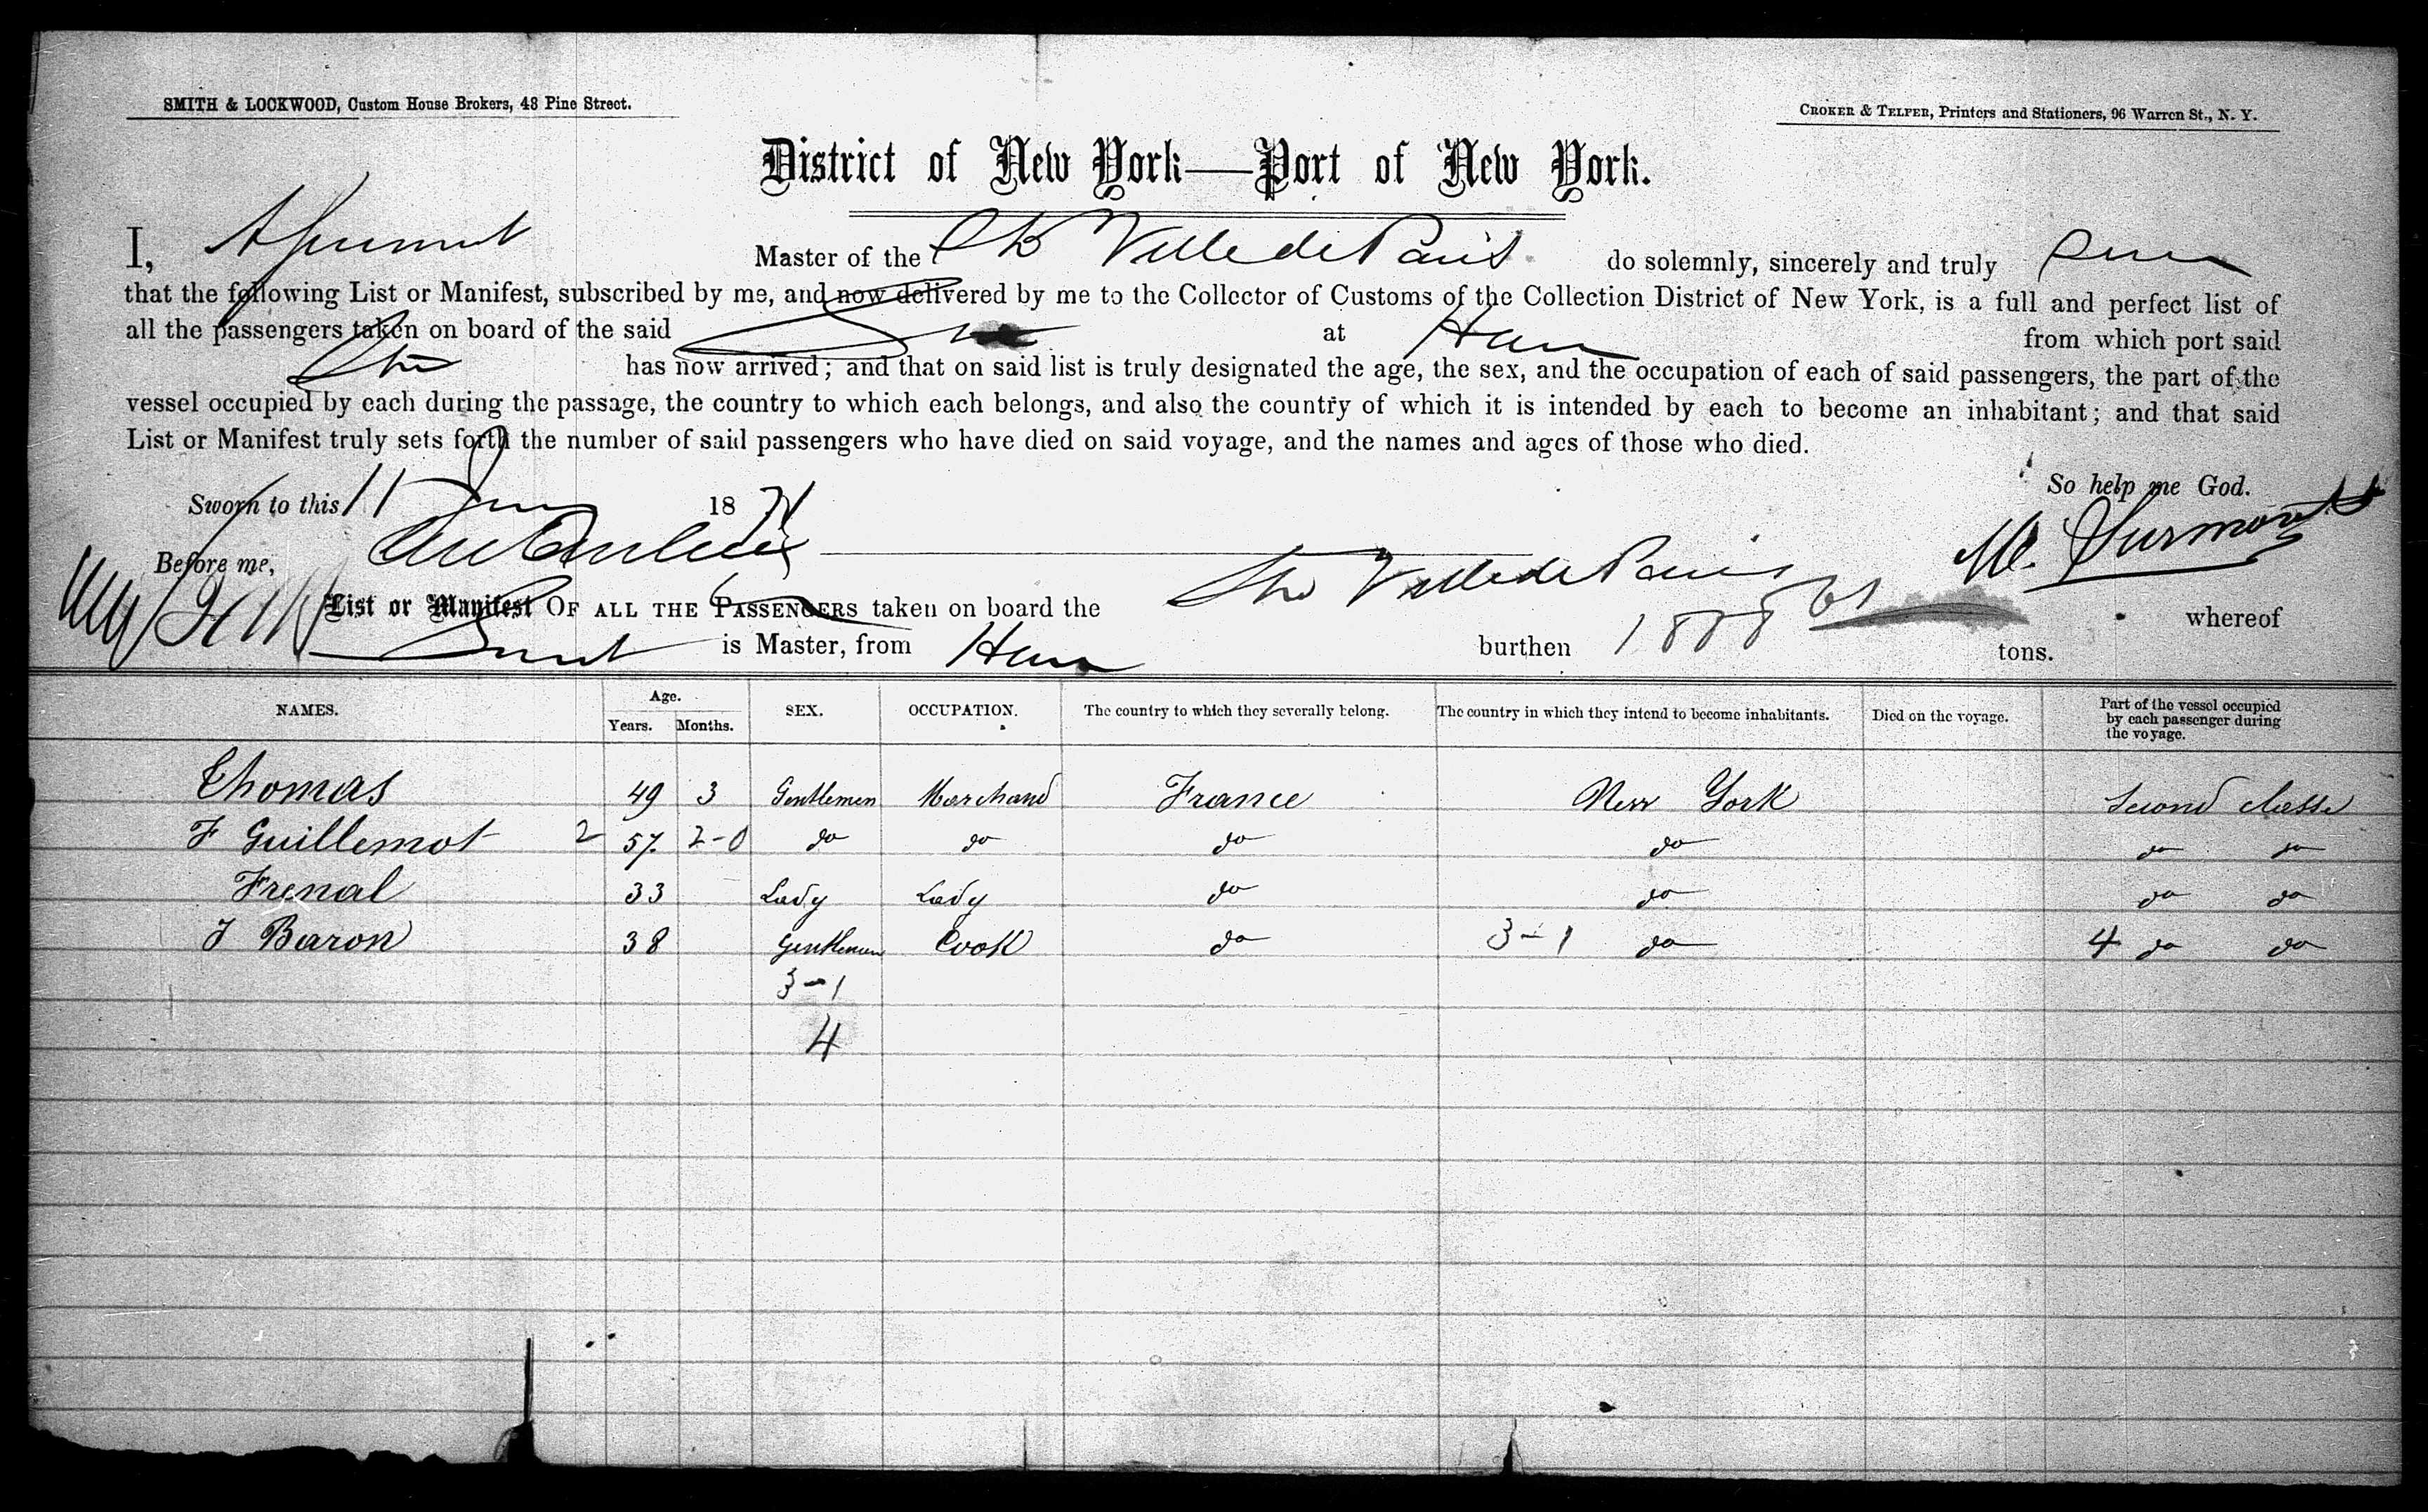 SMITH & LOCKWOOD, Custom House Brokers, 48 Pine Street.
CROKER & TELFER, Printers and Stationers, 96 Warren St., N. Y.
District of New York—Port of New York.
I, Master of the Ville de Paris do solemnly, sincerely and truly
that the following List or Manifest, subscribed by me, and now delivered by me to the Collector of Customs of the Collection District of New York, is a full and perfect list of
all the passengers taken on board of the said at from which port said
has now arrived; and that on said list is truly designated the age, the sex, and the occupation of each of said passengers, the part of the
vessel occupied by each during the passage, the country to which each belongs, and also the country of which it is intended by each to become an inhabitant; and that said
List or Manifest truly sets forth the number of said passengers who have died on said voyage, and the names and ages of those who died.
So help me God.
Sworn to this 11 18 71
Before me,
List or Manifest OF ALL THE PASSENGERS taken on board the Ville de Paris whereof
is Master, from burthen tons.
NAMES. Age. Years. Months. SEX. OCCUPATION. The country to which they severally belong. The country in which they intend to become inhabitants. Died on the voyage. Part of the vessel occupied by each passenger during the voyage.
Thomas 49 3 Gentlemen Marchand France New York Second classe
F Guillemot 2 57 2-0 do do do do do do
Frenal 33 Lady Lady do do do do
J Baron 38 Gentlemen Cook do 3-1 do 4 do do
3-1
4